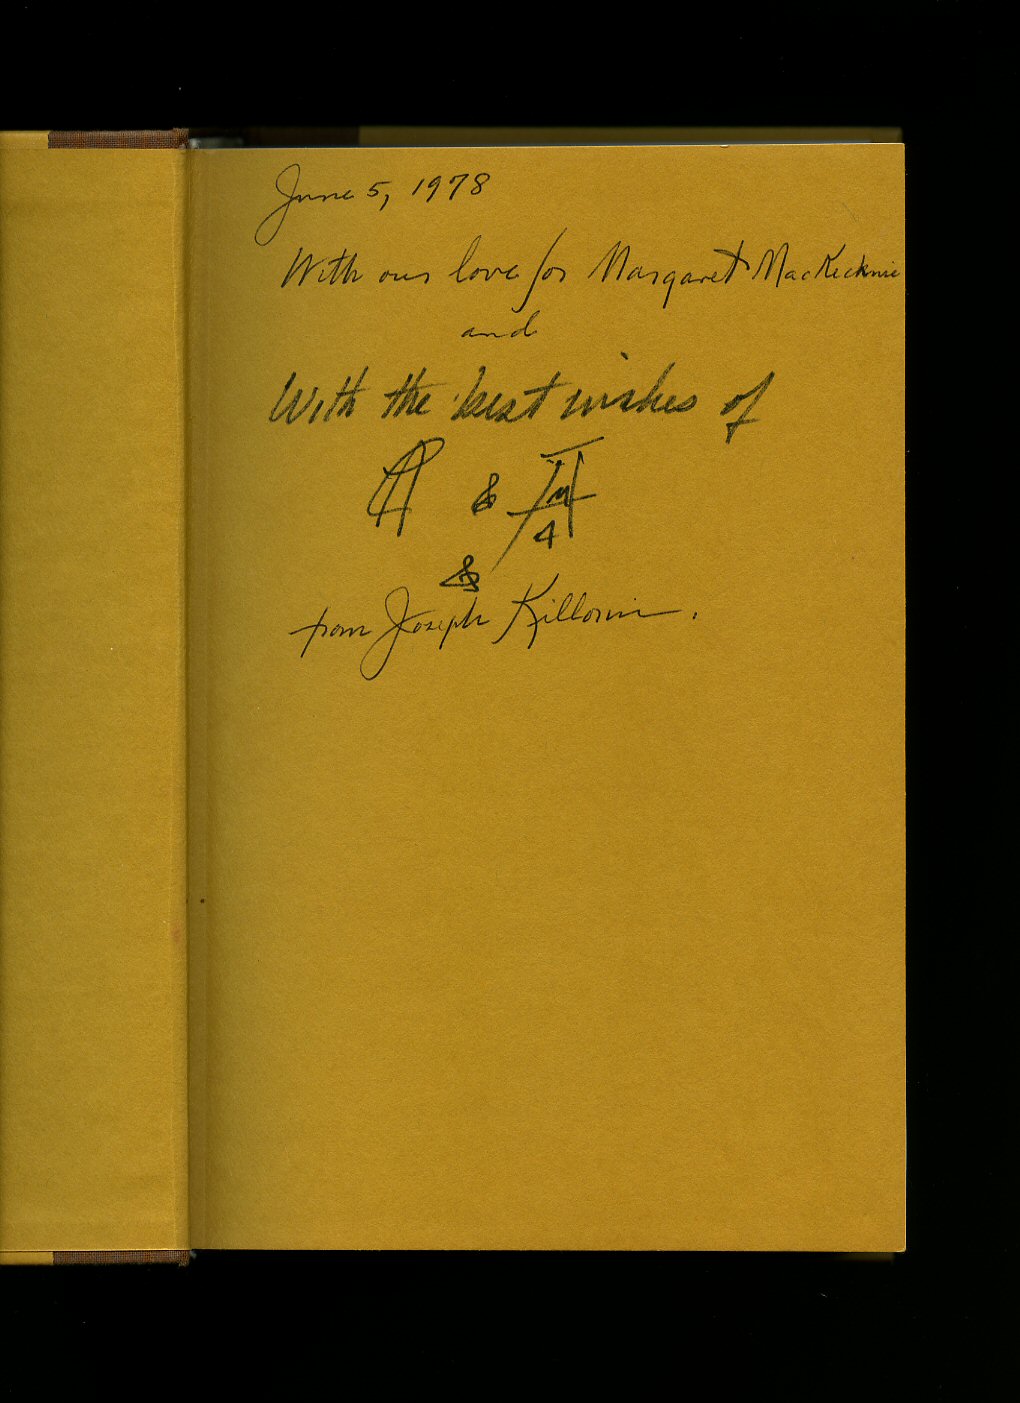 June 5, 1978
With our love for Margaret MacKecknie
and
With the best wishes of
&
4
&
from Joseph Killorin.